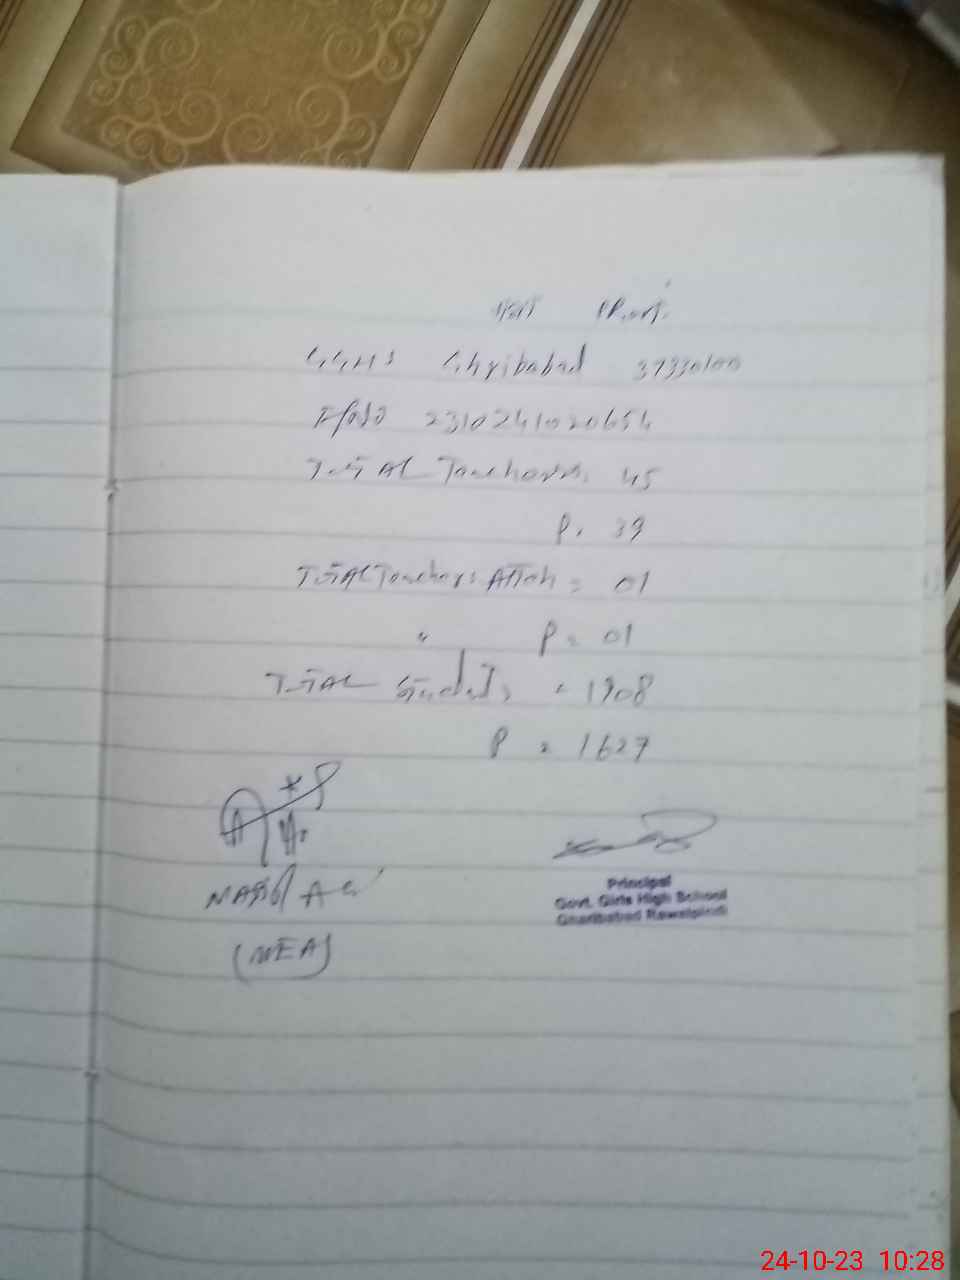 GGHS Ghribabad 37330100
2310241020654
Total Teachers. 45
P. 39
Total Teachers Attch = 01
" P = 01
Total Students = 1908
P = 1627
(MEA)
Principal
Govt. Girls High School
Gharibabad Rawalpindi
24-10-23 10:28